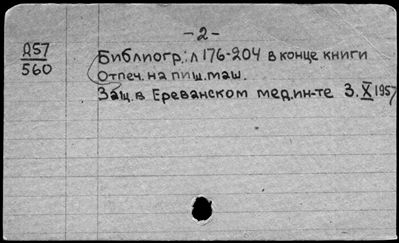 - 2 -
Д57
560
Библиогр.: л 176-204 в конце книги
Отпеч. на пиш. маш.
Защ. в Ереванском мед. ин-те 3.X 1957